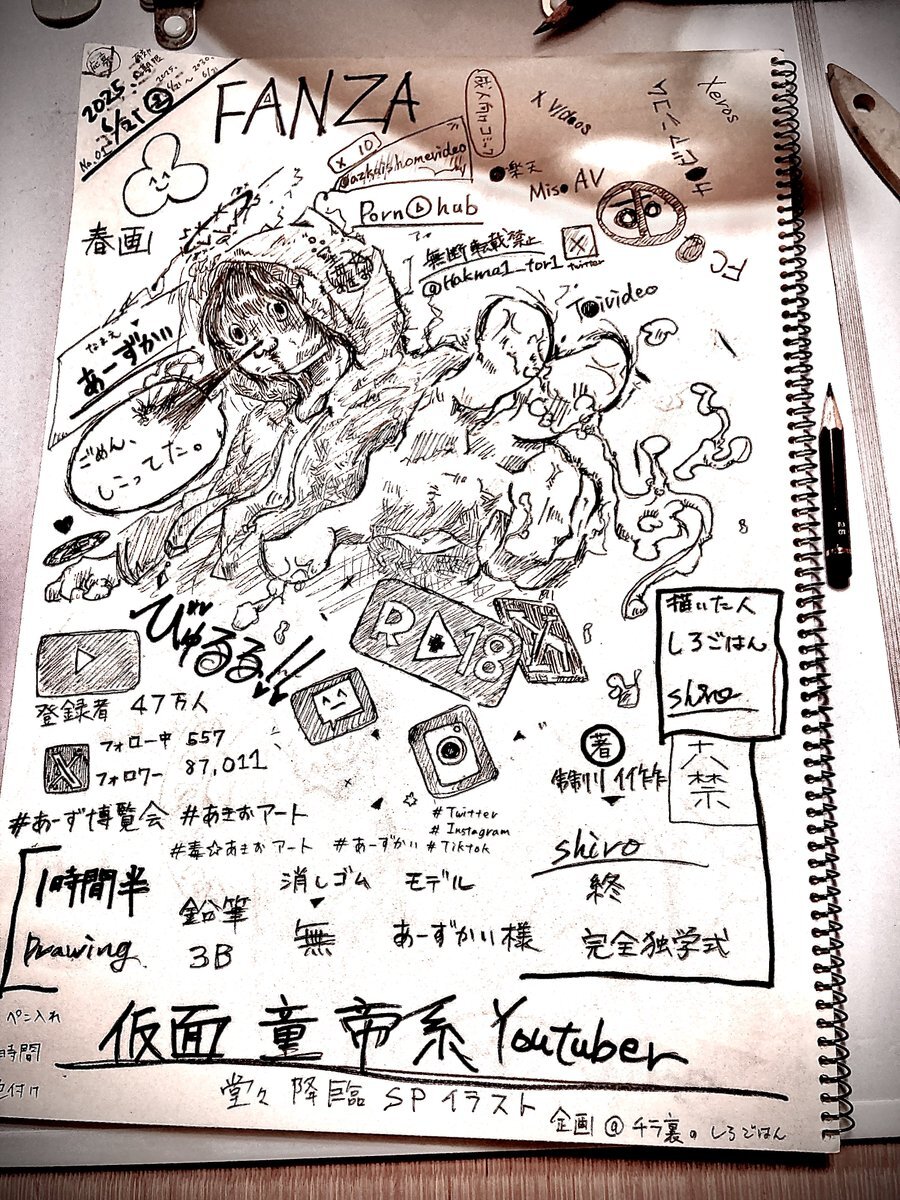 2025
6/21 土
No.01
FANZA
成人向コミック
X Videos
xeros
× 10
@azkaishomevideo
楽天
Miso AV
FC
春画
Pornhub
無断転載禁止
@Hakma1_tor1
twitter
なまえ
あーずかい
ごめん、
しこってた。
びゅるる!!
R 18
描いた人
しろごはん
shiro
登録者 47万人
フォロー中 557
フォロワー 87,011
著
制作
六禁
#あーず博覧会 #あきおアート
#Twitter
#Instagram
#毒☆あきおアート #あーずかい #Tiktok
shiro
終
1時間半
Drawing
鉛筆
3B
消しゴム
無
モデル
あーずかい様
完全独学式
ペン入れ
時間
色付け
仮面 童帝系 Youtuber
堂々 降臨 SP イラスト
企画 @ チラ裏の しろごはん